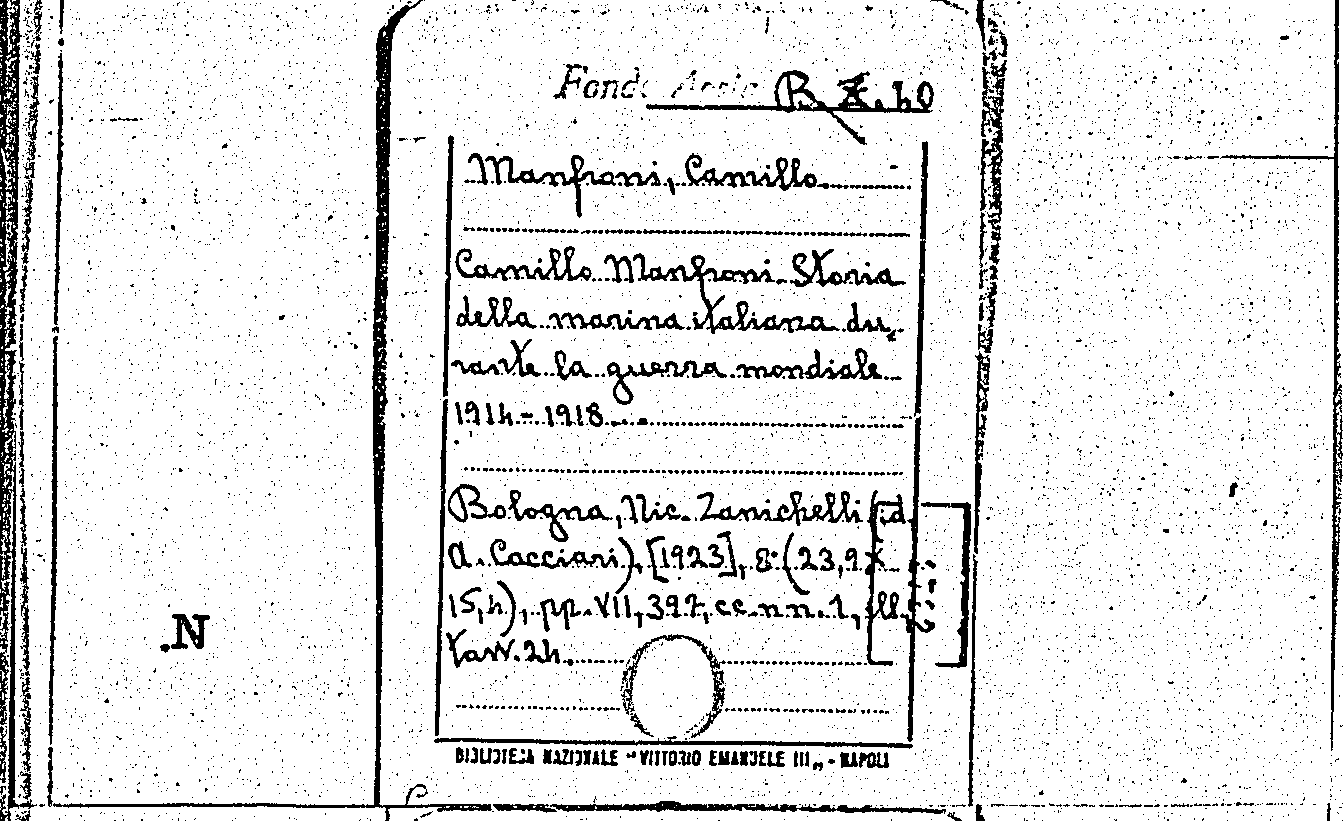 Fondo B. X. 40
Manfroni, Camillo
Camillo Manfroni. Storia
della marina italiana du-
rante la guerra mondiale
1914-1918...
Bologna, Nic. Zanichelli (id.
A. Cacciari), [1923], 8° (23,9 x
15,4), pp. VII, 397, cc. n n. 1, ill.,
tavv. 24.
.N
BIBLIOTECA NAZIONALE "VITTORIO EMANUELE III„ - NAPOLI